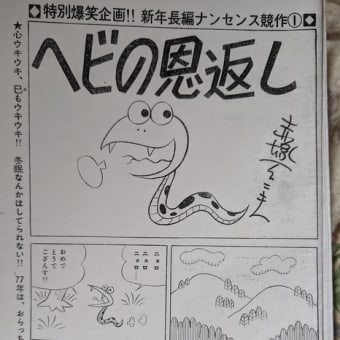 ◆特別爆笑企画!! 新年長編ナンセンス競作①◆
ヘビの恩返し
赤塚不二夫
★心ウキウキ、巳もウキウキ!! 冬眠なんかはしてられない!! '77年は、おらっち
ニョロ
ニョロ…
おめで
とうで
ござんす!!